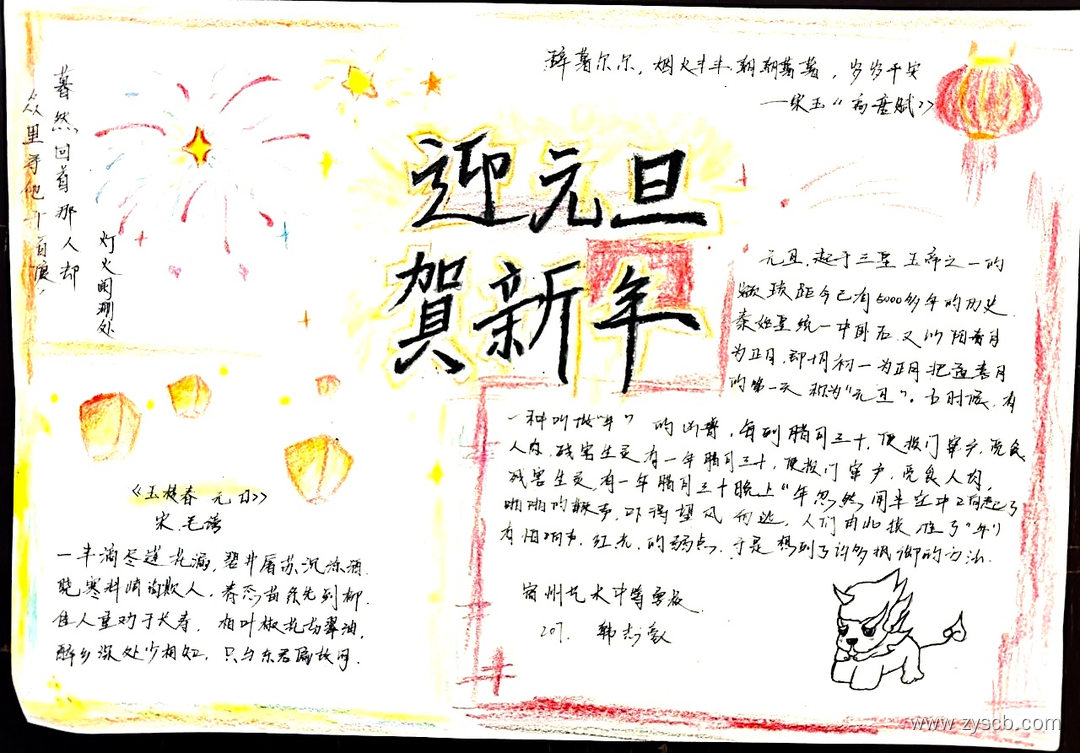 蓦然回首那人却
灯火阑珊处
碎暮尔尔,烟火丰丰,朝朝暮暮,岁岁平安
——宋玉《高唐赋》
迎元旦
贺新年
元旦,起于三皇五帝之一的
颛顼距今已有5000多年的历史
秦始皇统一中国后,又以阳春月
为正月,即十月初一为正月把
的第一天称为“元旦”。古时候,有
一种叫做“年”的凶兽,每到腊月三十,便挨门窜户,觅食
人肉,残害生灵有一年腊月三十,便挨门窜户,觅食人肉,
残害生灵有一年腊月三十晚上“年忽然闻半空中
啪啪的鞭声,吓得望风而逃,人们由此摸准了“年”
有怕响声,红光,的弱点,于是想到了许多抵御的方法.
宿州艺术中等学校
207.
《玉楼春 元日》
宋.毛滂
一年滴尽莲花漏,碧井屠苏沉冻酒.
晓寒料峭尚欺人,春态苗条先到柳.
佳人重劝千长寿,柏叶椒花芬翠袖,
醉乡深处少相知,只与东君偏故旧.
www.zyscb.com